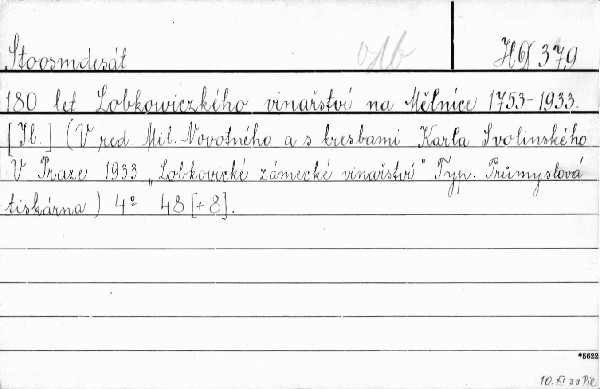 Stoosmdesát HD 379
180 let Lobkowiczkého vinařství na Mělníce 1753-1933.
[Il.] (V red. Mil. Novotného a s kresbami Karla Svolinského
V Praze 1933 „Lobkovické zámecké vinařství" Typ. Průmyslová
tiskárna) 4º 48 [+8].
*5622
10. XI 33